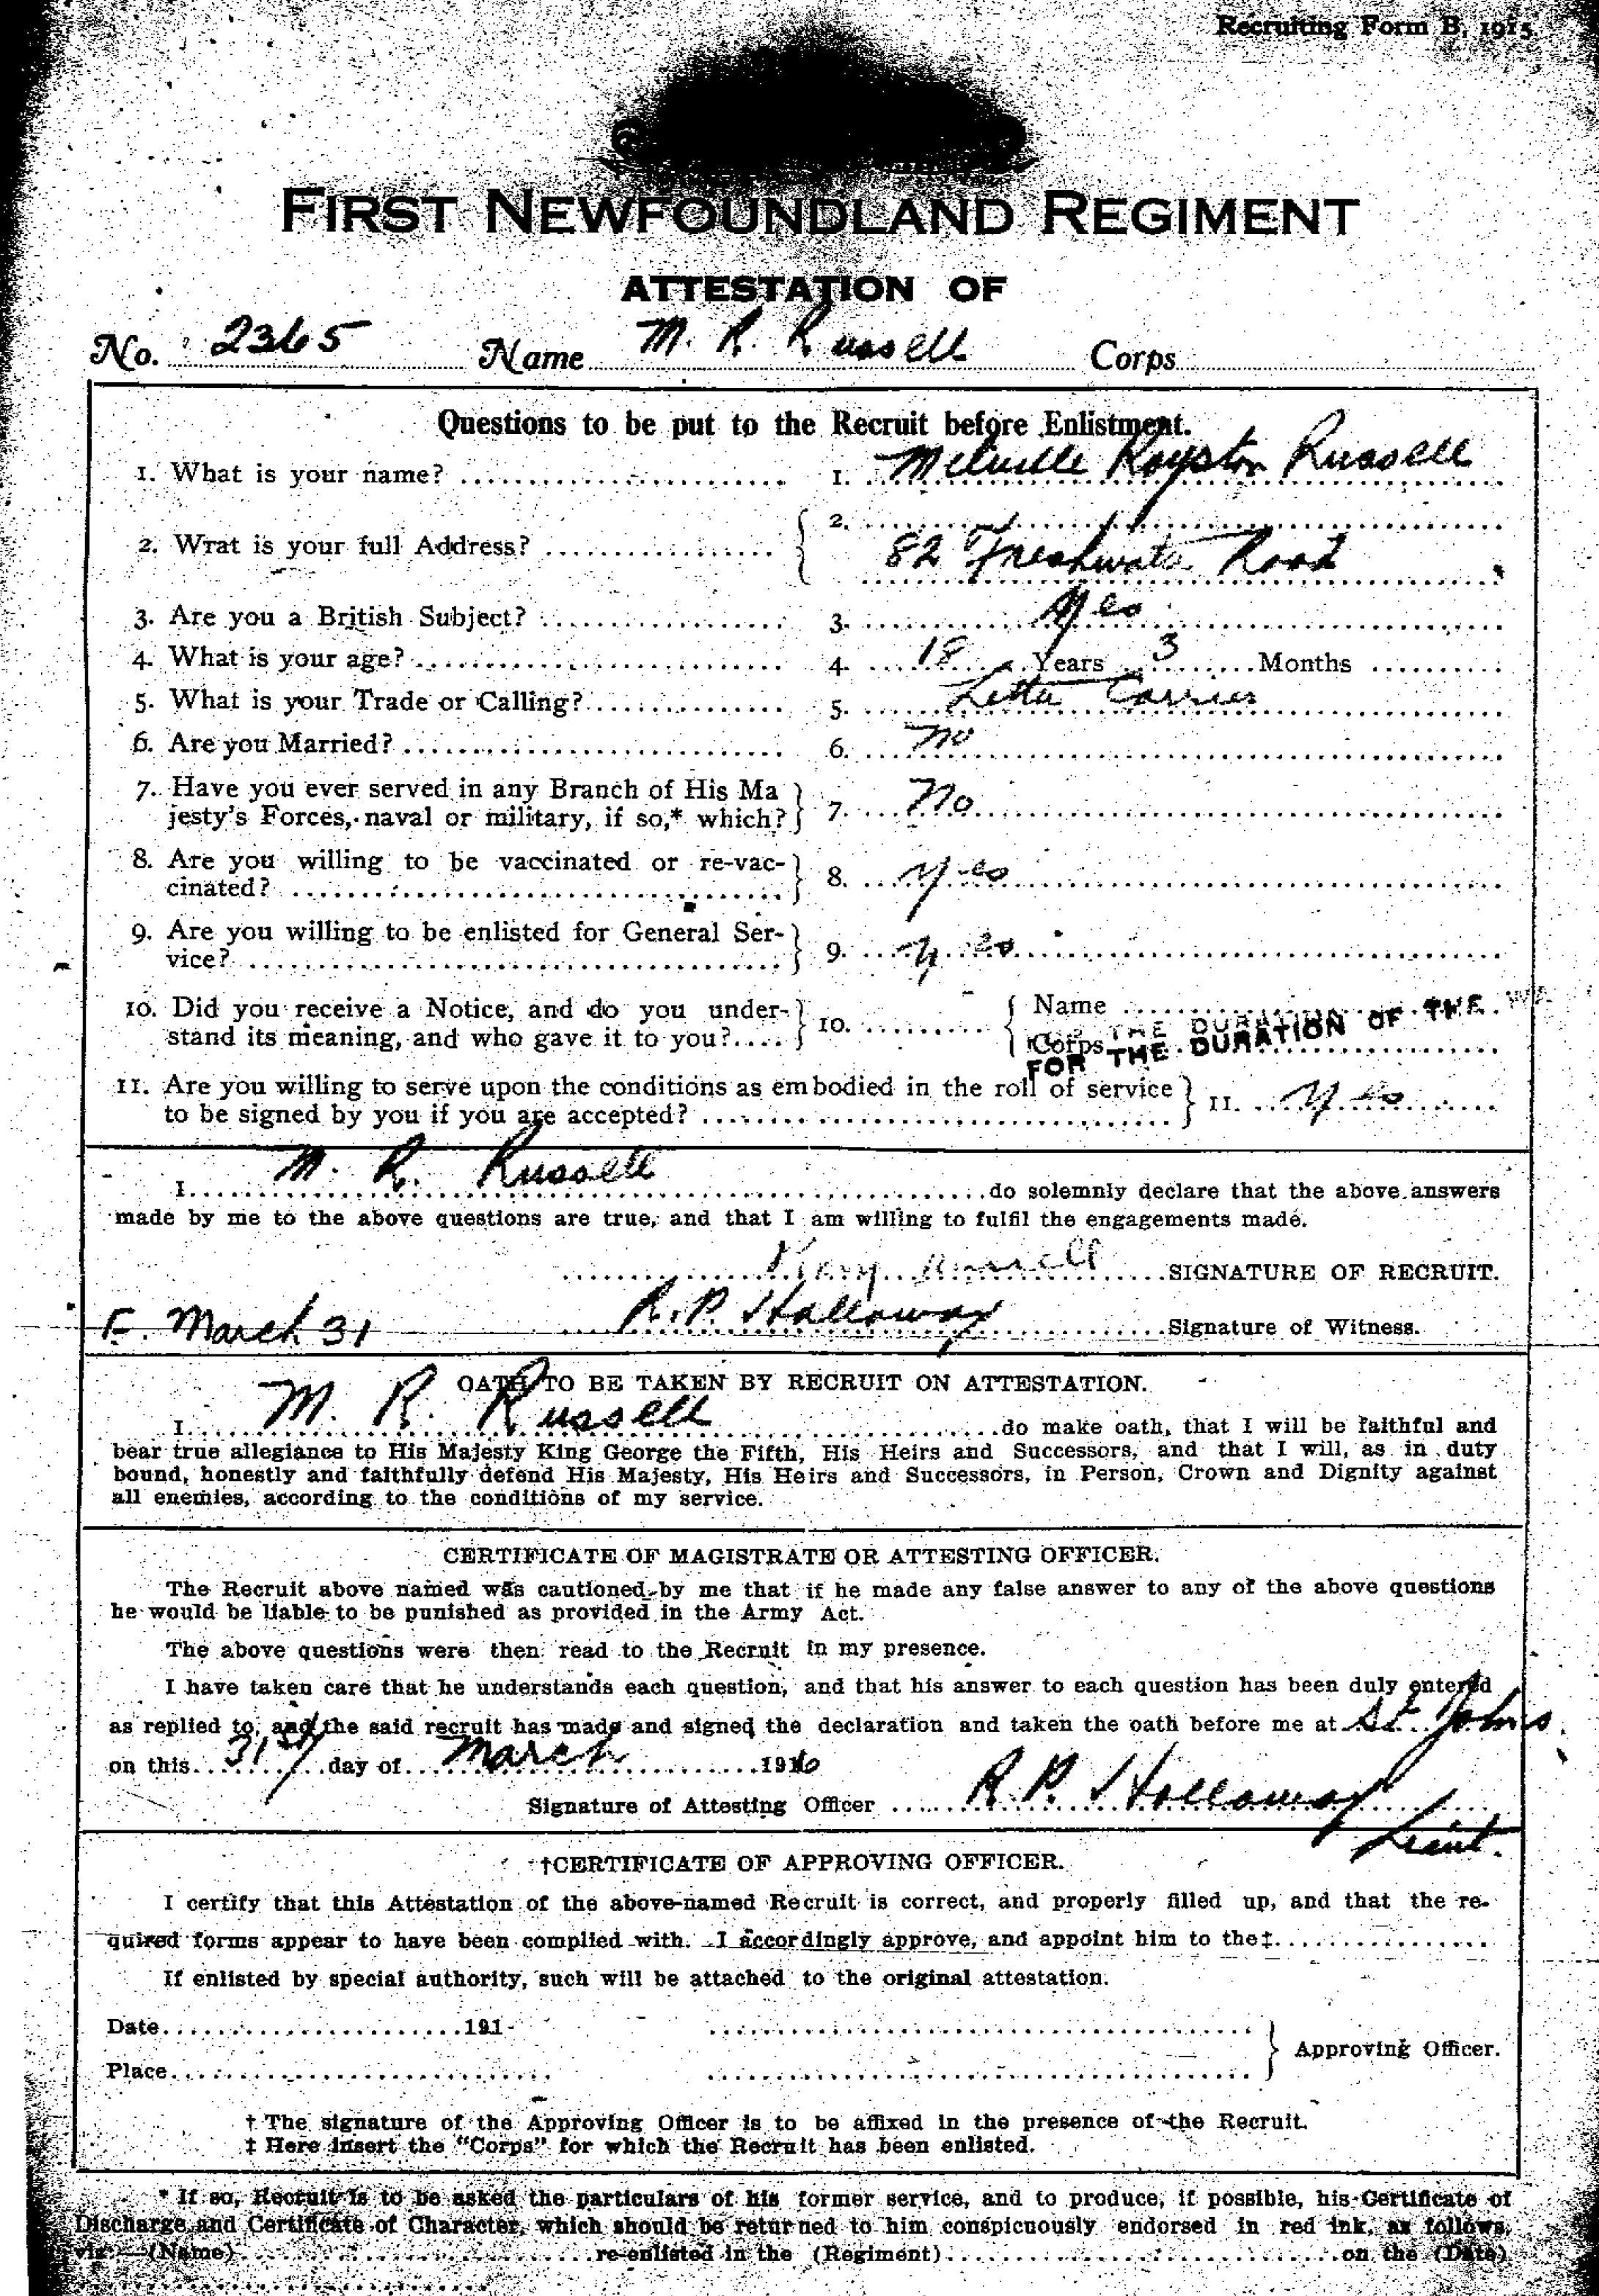 Recruiting Form B, 1915
FIRST NEWFOUNDLAND REGIMENT
ATTESTATION OF
No. 2365 Name M. R. Russell Corps
Questions to be put to the Recruit before Enlistment.
1. What is your name? 1. Melville Royston Russell
2. Wrat is your full Address? 2. 82 Freshwater Road
3. Are you a British Subject? 3. Yes
4. What is your age? 4. 18 Years 3 Months
5. What is your Trade or Calling? 5. Letter Carrier
6. Are you Married? 6. No
7. Have you ever served in any Branch of His Ma
jesty's Forces, naval or military, if so,* which? 7. No
8. Are you willing to be vaccinated or re-vac-
cinated? 8. Yes
9. Are you willing to be enlisted for General Ser-
vice? 9. Yes
10. Did you receive a Notice, and do you under-
stand its meaning, and who gave it to you? 10. Name
Corps
FOR THE DURATION OF THE
11. Are you willing to serve upon the conditions as embodied in the roll of service
to be signed by you if you are accepted? 11. Yes
I M. R. Russell do solemnly declare that the above answers
made by me to the above questions are true, and that I am willing to fulfil the engagements made.
SIGNATURE OF RECRUIT.
March 31 R. P. Holloway Signature of Witness.
OATH TO BE TAKEN BY RECRUIT ON ATTESTATION.
I M. R. Russell do make oath, that I will be faithful and
bear true allegiance to His Majesty King George the Fifth, His Heirs and Successors, and that I will, as in duty
bound, honestly and faithfully defend His Majesty, His Heirs and Successors, in Person, Crown and Dignity against
all enemies, according to the conditions of my service.
CERTIFICATE OF MAGISTRATE OR ATTESTING OFFICER.
The Recruit above named was cautioned by me that if he made any false answer to any of the above questions
he would be liable to be punished as provided in the Army Act.
The above questions were then read to the Recruit in my presence.
I have taken care that he understands each question, and that his answer to each question has been duly entered
as replied to, and the said recruit has made and signed the declaration and taken the oath before me at St. Johns
on this 31st day of March 1916
Signature of Attesting Officer R. P. Holloway
Lieut.
†CERTIFICATE OF APPROVING OFFICER.
I certify that this Attestation of the above-named Recruit is correct, and properly filled up, and that the re-
quired forms appear to have been complied with. I accordingly approve, and appoint him to the‡
If enlisted by special authority, such will be attached to the original attestation.
Date 191-
Place
Approving Officer.
† The signature of the Approving Officer is to be affixed in the presence of the Recruit.
‡ Here insert the "Corps" for which the Recruit has been enlisted.
* If so, Recruit is to be asked the particulars of his former service, and to produce, if possible, his Certificate of
Discharge and Certificate of Character, which should be returned to him conspicuously endorsed in red ink, as follows,
viz:—(Name) re-enlisted in the (Regiment) on the (Date)